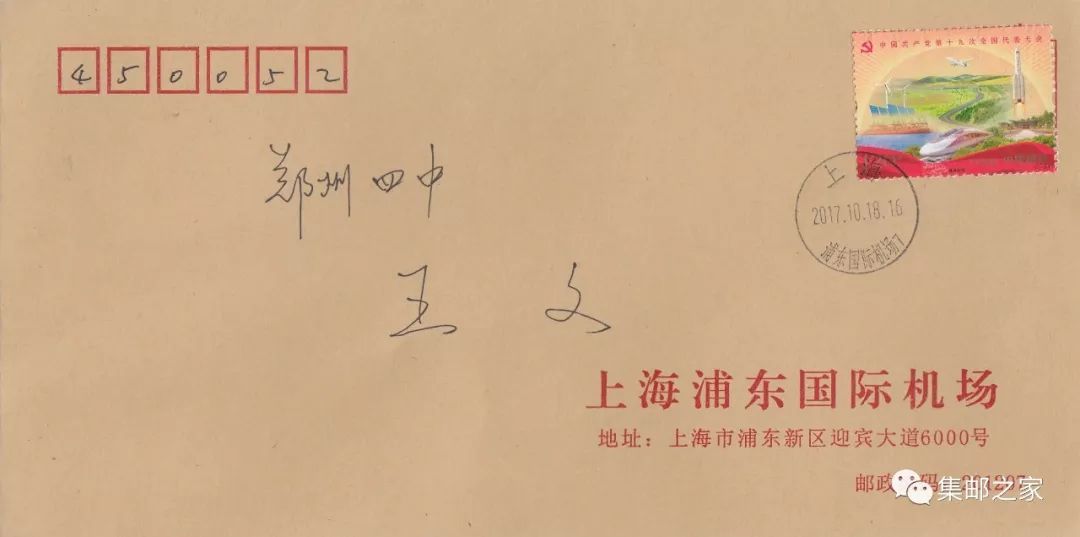 中国共产党第十九次全国代表大会
450052
郑州四中
王 文
上海
2017.10.18.16
浦东国际机场1
上海浦东国际机场
地址：上海市浦东新区迎宾大道6000号
邮政 码 201207
集邮之家